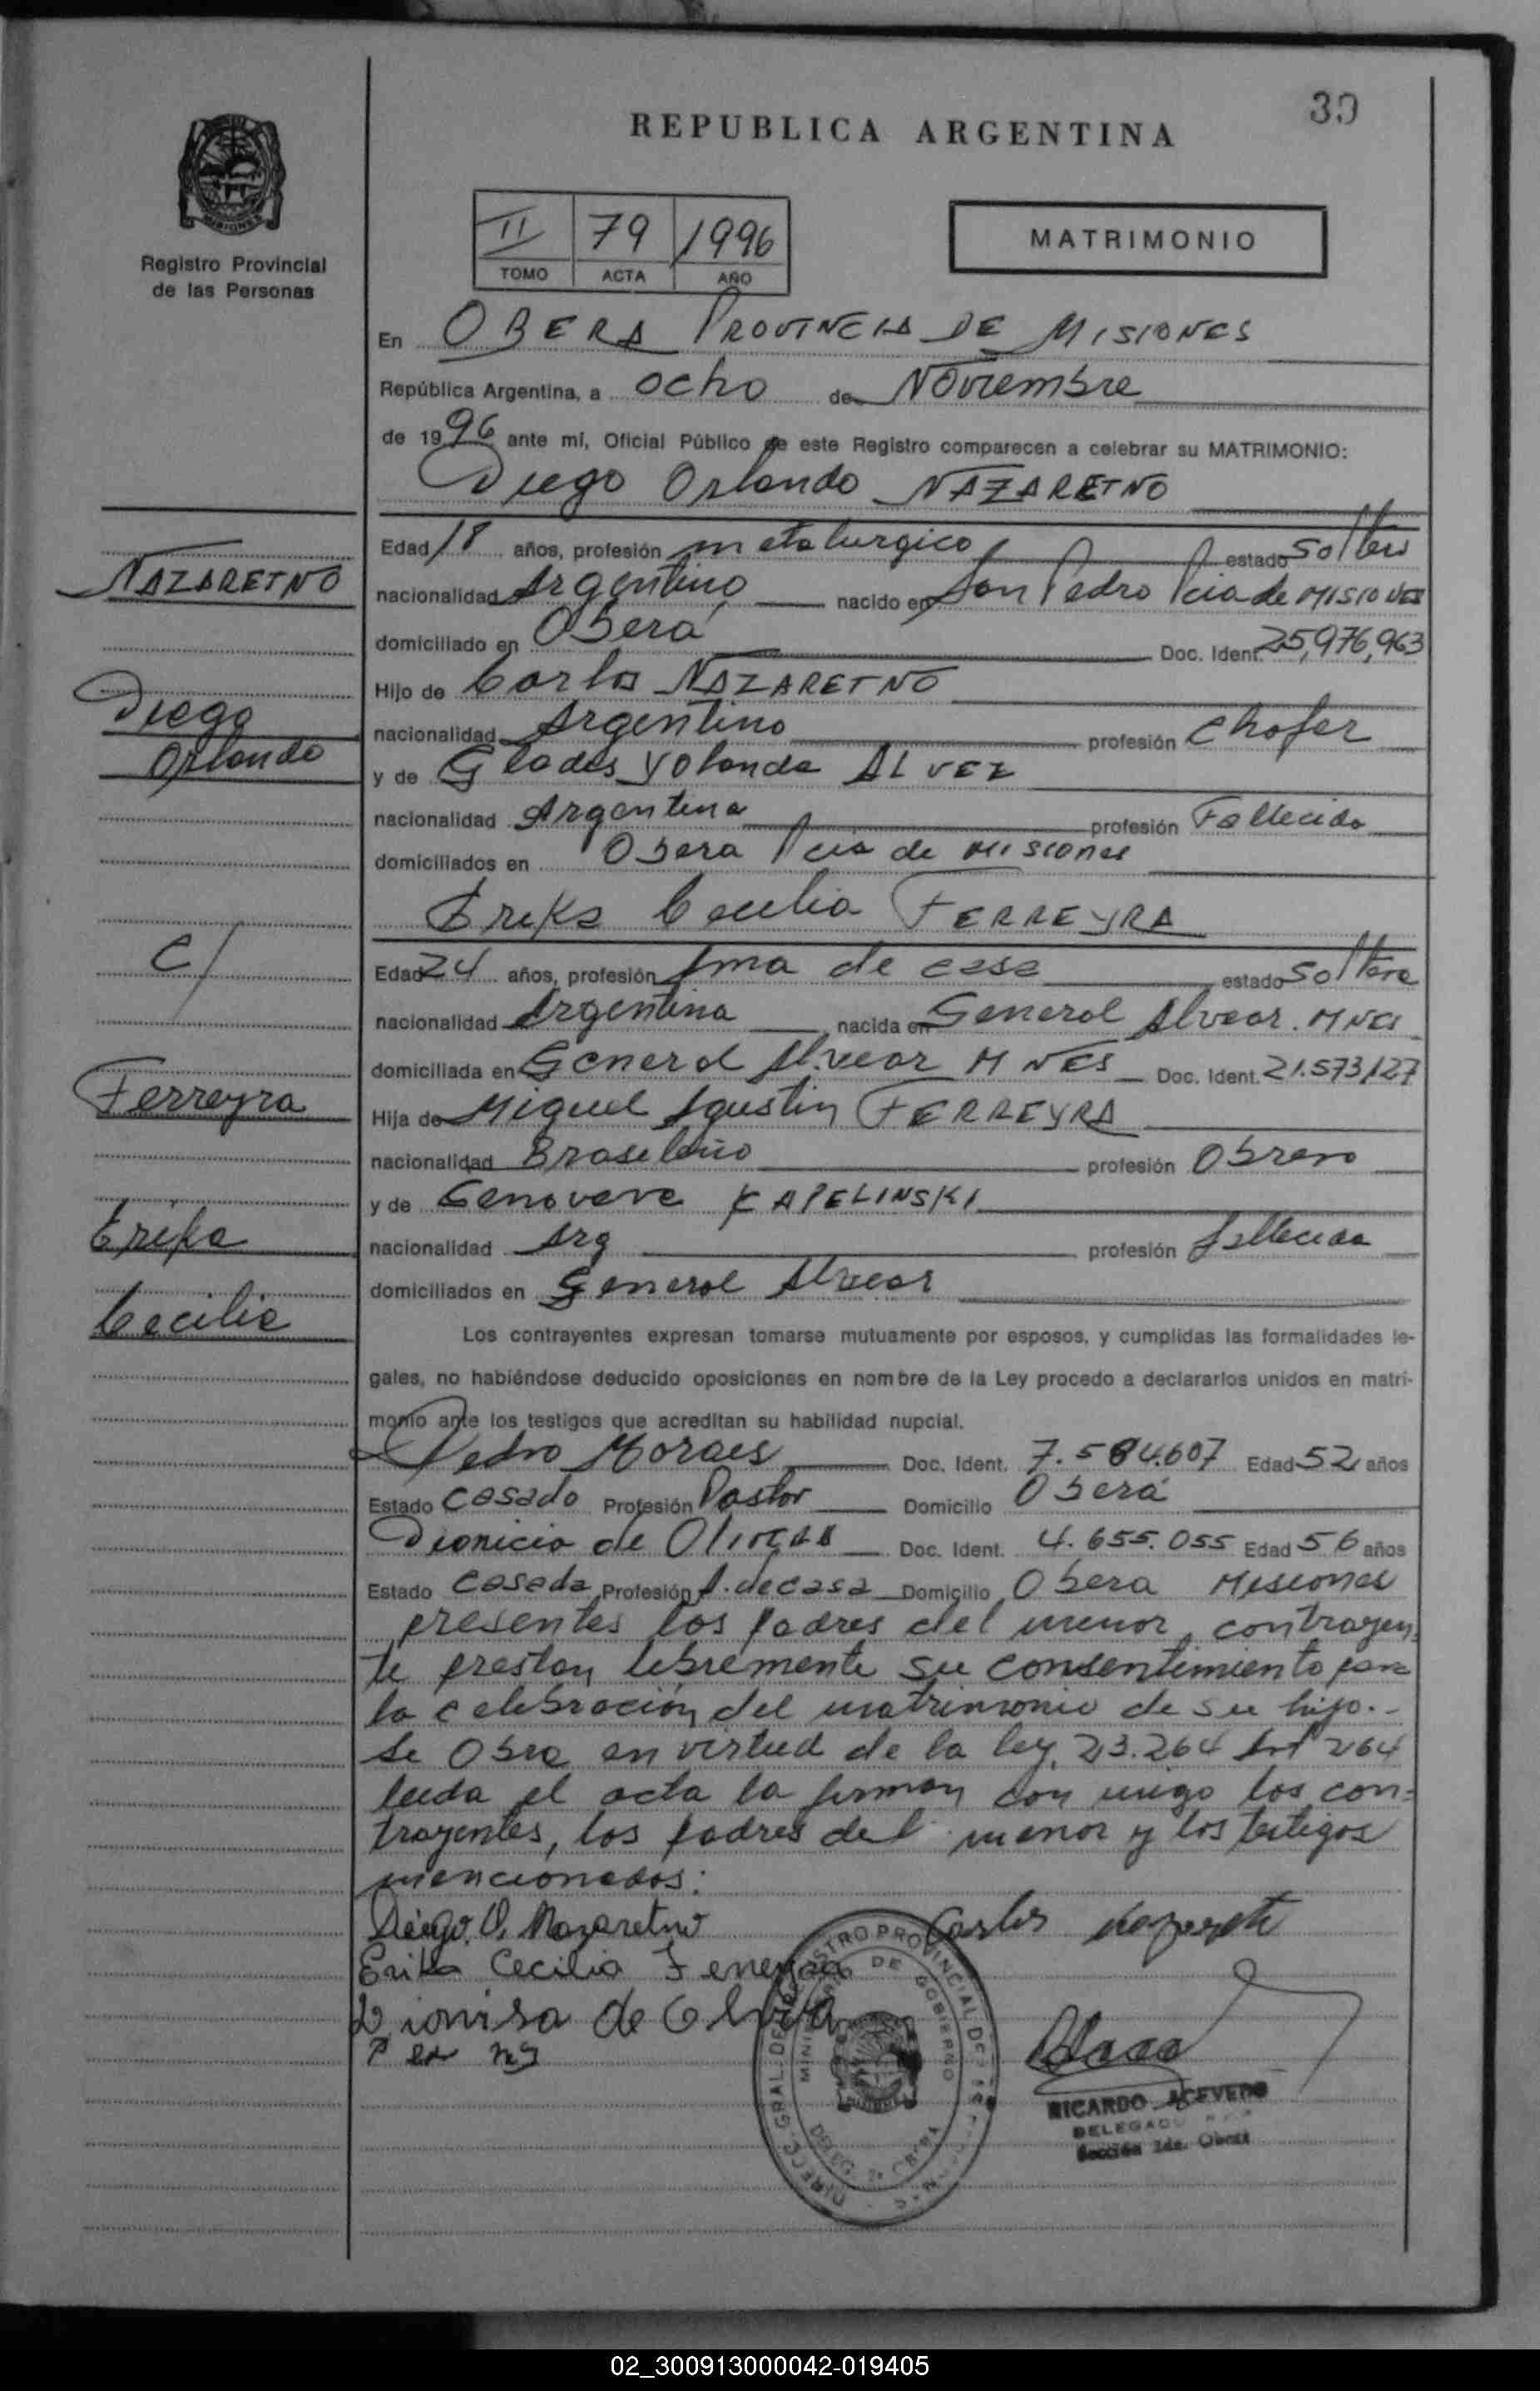 30
REPUBLICA ARGENTINA
II 79 1996
TOMO ACTA AÑO
MATRIMONIO
Registro Provincial
de las Personas
En OBERA PROVINCIA DE MISIONES
República Argentina, a ocho de Noviembre
de 1996 ante mí, Oficial Público de este Registro comparecen a celebrar su MATRIMONIO:
Diego Orlando NAZARETNO
Edad 18 años, profesión metalurgico estado soltero
NAZARETNO
nacionalidad Argentino nacido en San Pedro Pcia de MISIONES
domiciliado en Oberá Doc. Ident. 25,976,963
Hijo de Carlos NAZARETNO
Diego
nacionalidad Argentino profesión Chofer
Orlando
y de Glades Yolanda ALVEZ
nacionalidad Argentina profesión Fallecida
domiciliados en Obera Pcia de Misiones
Erika Cecilia FERREYRA
C/
Edad 24 años, profesión Ama de casa estado Soltera
nacionalidad Argentina nacida en General Alvear. MNES
domiciliada en General Alvear MNES Doc. Ident. 21.573,127
Ferreyra
Hija de Miguel Agustin FERREYRA
nacionalidad Brasileño profesión Obrero
y de Genoveva KAPELINSKI
Erika
nacionalidad Arg profesión fallecida
domiciliados en General Alvear
Cecilia
Los contrayentes expresan tomarse mutuamente por esposos, y cumplidas las formalidades le-
gales, no habiéndose deducido oposiciones en nombre de la Ley procedo a declararlos unidos en matri-
monio ante los testigos que acreditan su habilidad nupcial.
Pedro Moraes Doc. Ident. 7.584.607 Edad 52 años
Estado Casado Profesión Pastor Domicilio Oberá
Dionicia de Oliveira Doc. Ident. 4.655.055 Edad 56 años
Estado Casada Profesión A. de casa Domicilio Obera Misiones
presentes los padres del menor contrayen-
te prestan libremente su consentimiento para
la celebración del matrimonio de su hijo.-
Se Obra en virtud de la ley 23.264 Art 264
leida el acta la firman con migo los con-
trayentes, los padres del menor y los testigos
mencionados:
Diego O. Nazaretno
Carlos
Erika Cecilia Ferreyra
Dionisa de
RICARDO ACEVEDO
DELEGADO
Sección 2da. Oberá
DIRECC. GRAL. DE REGISTRO PROVINCIAL DE
MINISTERIO DE GOBIERNO
02_300913000042-019405